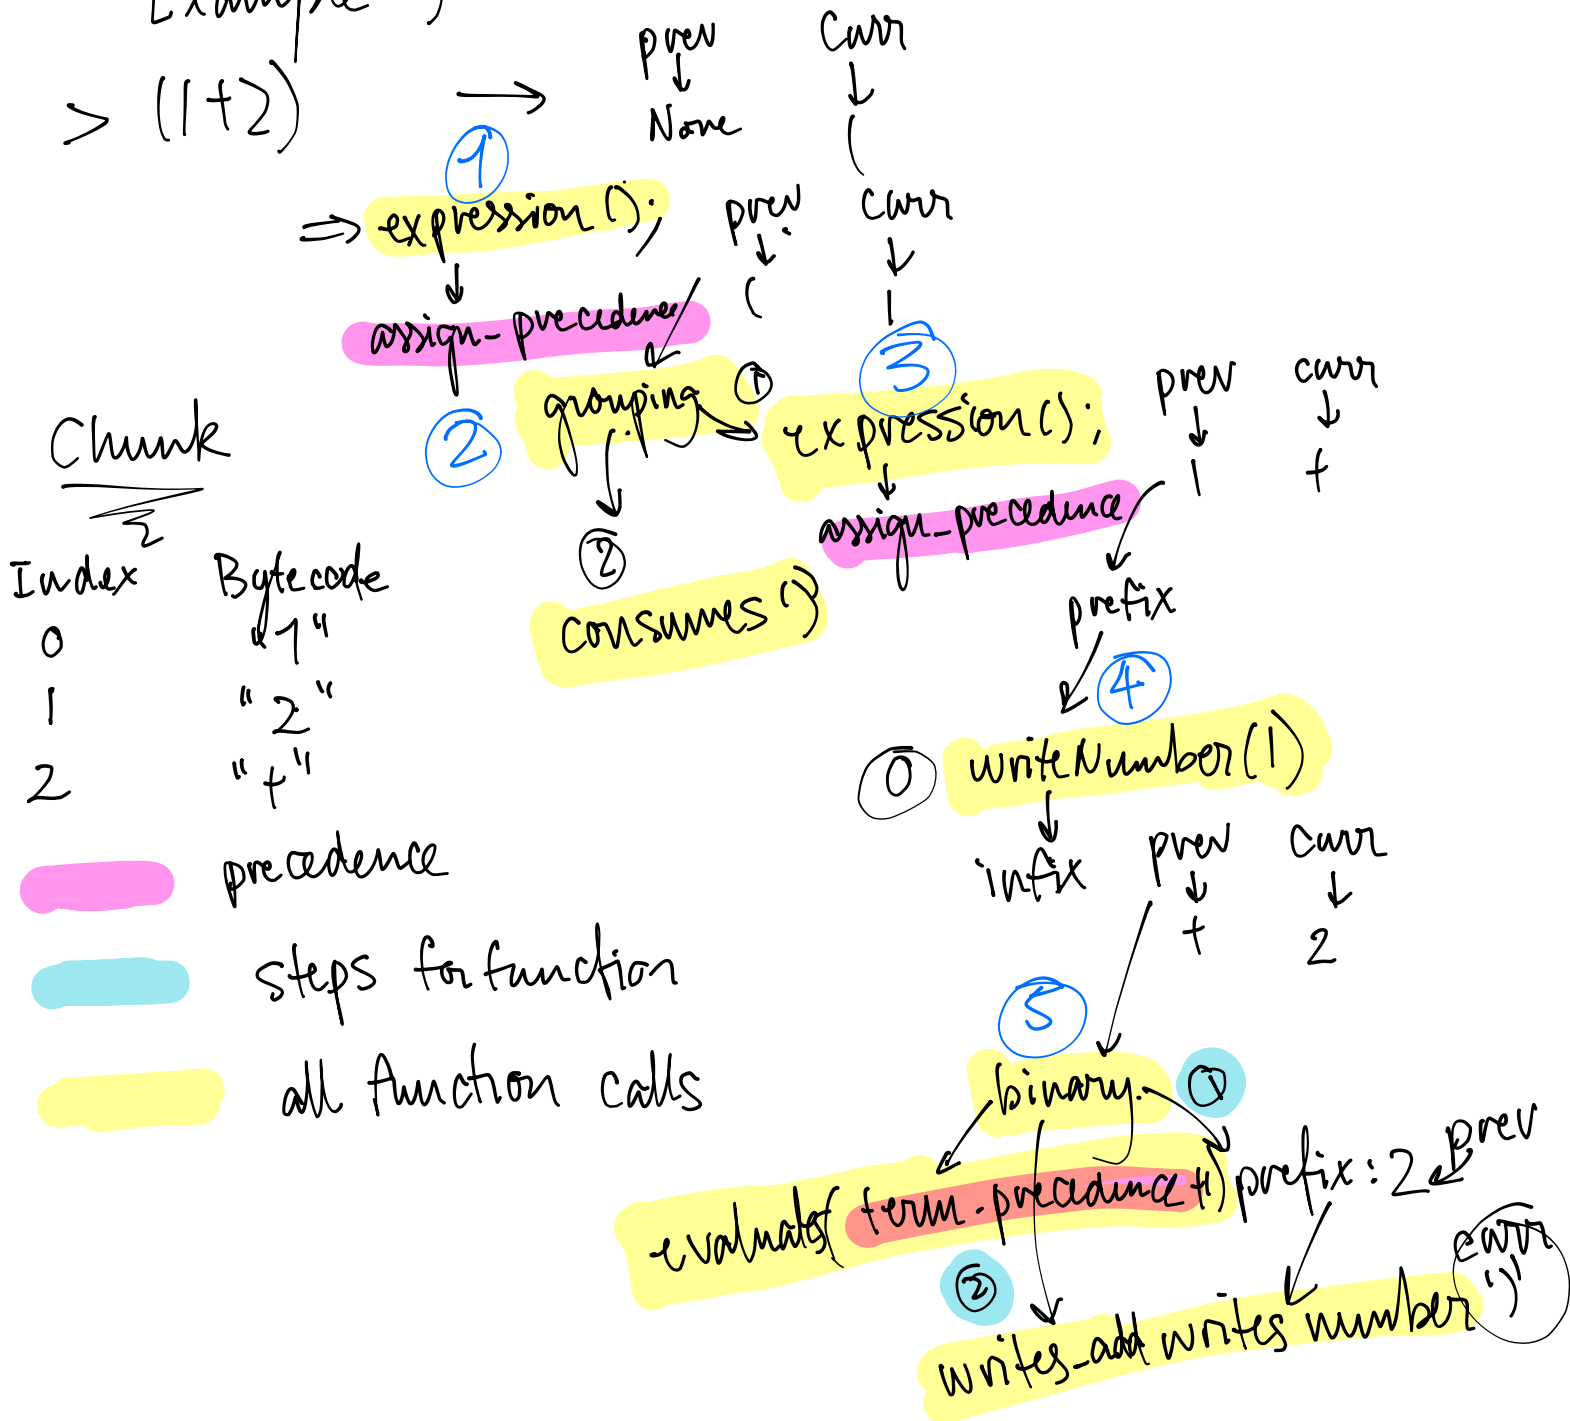 Example ;
> (1+2) →
prev Curr
↓ ↓
None (
1
⇒ expression();
prev curr
↓ ↓
( 1
↓
assign_precedence
2
grouping 1
3
expression();
↓
assign_precedence
prev curr
↓ ↓
1 +
2
consumes()
prefix
4
0 writeNumber(1)
↓
infix
prev curr
↓ ↓
+ 2
5
binary. 1
evaluates( term.precedence+1) prefix: 2 ← prev
curr
')'
2
writes_add writes number
Chunk
Index Bytecode
0 "1"
1 "2"
2 "+"
precedence
steps for function
all function calls